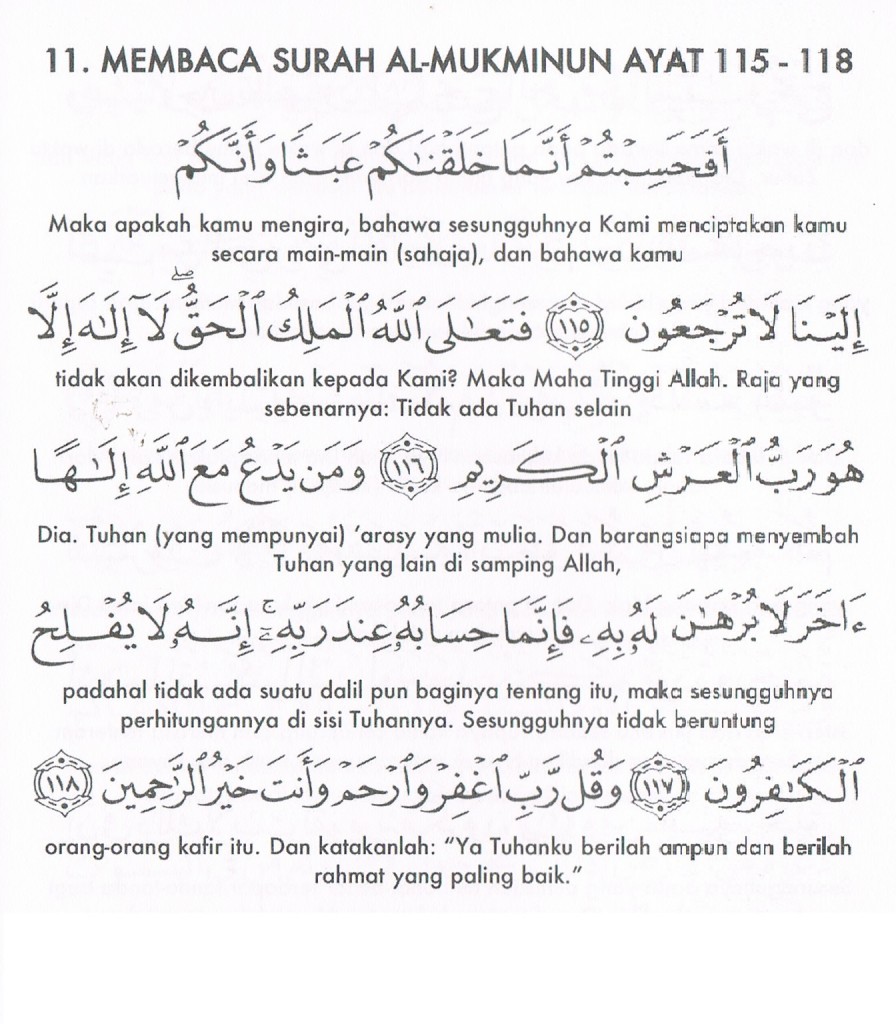 11. MEMBACA SURAH AL-MUKMINUN AYAT 115 - 118
أَفَحَسِبْتُمْ أَنَّمَا خَلَقْنَٰكُمْ عَبَثًا وَأَنَّكُمْ
Maka apakah kamu mengira, bahawa sesungguhnya Kami menciptakan kamu
secara main-main (sahaja), dan bahawa kamu
إِلَيْنَا لَا تُرْجَعُونَ ١١٥ فَتَعَٰلَى ٱللَّهُ ٱلْمَلِكُ ٱلْحَقُّ ۖ لَآ إِلَٰهَ إِلَّا
tidak akan dikembalikan kepada Kami? Maka Maha Tinggi Allah. Raja yang
sebenarnya: Tidak ada Tuhan selain
هُوَ رَبُّ ٱلْعَرْشِ ٱلْكَرِيمِ ١١٦ وَمَن يَدْعُ مَعَ ٱللَّهِ إِلَٰهًا
Dia. Tuhan (yang mempunyai) ‘arasy yang mulia. Dan barangsiapa menyembah
Tuhan yang lain di samping Allah,
ءَاخَرَ لَا بُرْهَٰنَ لَهُۥ بِهِۦ فَإِنَّمَا حِسَابُهُۥ عِندَ رَبِّهِۦٓ ۚ إِنَّهُۥ لَا يُفْلِحُ
padahal tidak ada suatu dalil pun baginya tentang itu, maka sesungguhnya
perhitungannya di sisi Tuhannya. Sesungguhnya tidak beruntung
ٱلْكَٰفِرُونَ ١١٧ وَقُل رَّبِّ ٱغْفِرْ وَٱرْحَمْ وَأَنتَ خَيْرُ ٱلرَّٰحِمِينَ ١١٨
orang-orang kafir itu. Dan katakanlah: “Ya Tuhanku berilah ampun dan berilah
rahmat yang paling baik.”